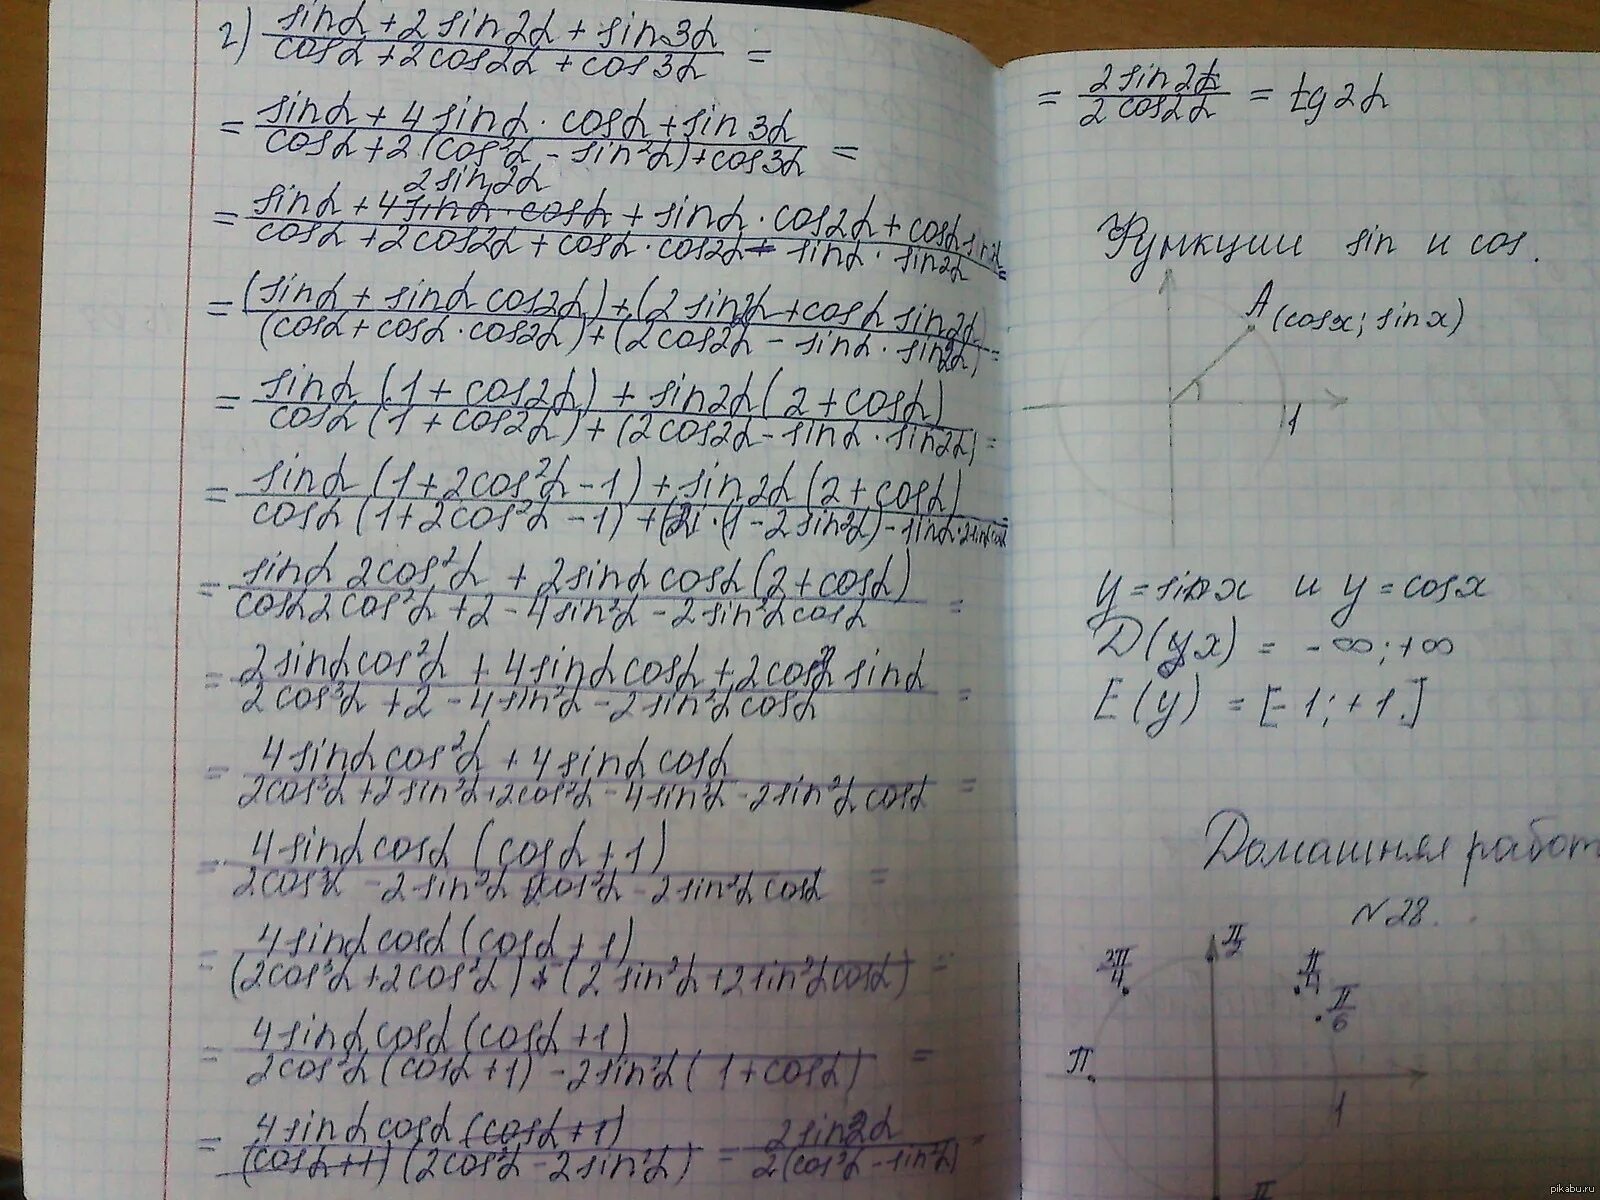 г) (sinα + 2 sin2α + sin 3α) / (cosα + 2cos2α + cos 3α) =
= (sinα + 4 sinα · cosα + sin 3α) / (cosα + 2 (cos²α - sin²α) + cos3α) =
2 sin 2α
= (sinα + 4 sinα · cosα + sinα · cos2α + cosα sin2α) / (cosα + 2cos2α + cosα · cos2α - sinα · sin2α) =
= ((sinα + sinα cos2α) + (2 sin2α + cosα sin2α)) / ((cosα + cosα · cos2α) + (2cos2α - sinα · sin2α)) =
= (sinα (1 + cos2α) + sin2α (2 + cosα)) / (cosα (1 + cos2α) + (2cos2α - sinα · sin2α)) =
= (sinα (1 + 2cos²α - 1) + sin2α (2 + cosα)) / (cosα (1 + 2cos²α - 1) + (2 · (1 - 2 sin²α) - sinα · 2sinα cosα)
= (sinα 2cos²α + 2sinα cosα (2 + cosα)) / (cosα 2cos²α + 2 - 4sin²α - 2sin²α cosα) =
= (2sinα cos²α + 4sinα cosα + 2cos²α sinα) / (2cos³α + 2 - 4sin²α - 2sin²α cosα) =
= (4sinα cos²α + 4sinα cosα) / (2cos³α + 2sin²α + 2cos²α - 4sin²α - 2sin²α cosα) =
= 4sinα cosα (cosα + 1) / (2cos³α - 2sin²α 2cos²α - 2sin²α cosα) =
= 4sinα cosα (cosα + 1) / ((2cos³α + 2cos²α) - (2 sin²α + 2sin²α cosα)) =
= 4sinα cosα (cosα + 1) / (2cos²α (cosα + 1) - 2sin²α (1 + cosα)) =
= 4sinα cosα (cosα + 1) / ((cosα + 1) (2cos²α - 2sin²α)) = 2sin2α / (2(cos²α - sin²α)) =
= 2 sin 2α / 2 cos2α = tg 2α
Функции sin и cos.
A (cosx; sinx)
1
y = sin x и y = cosx
D(yx) = -∞; +∞
E(y) = [-1; +1.]
Домашняя работ
№28.
π/2
3π/4
π/4
π/6
π
1
π
pikabu.ru